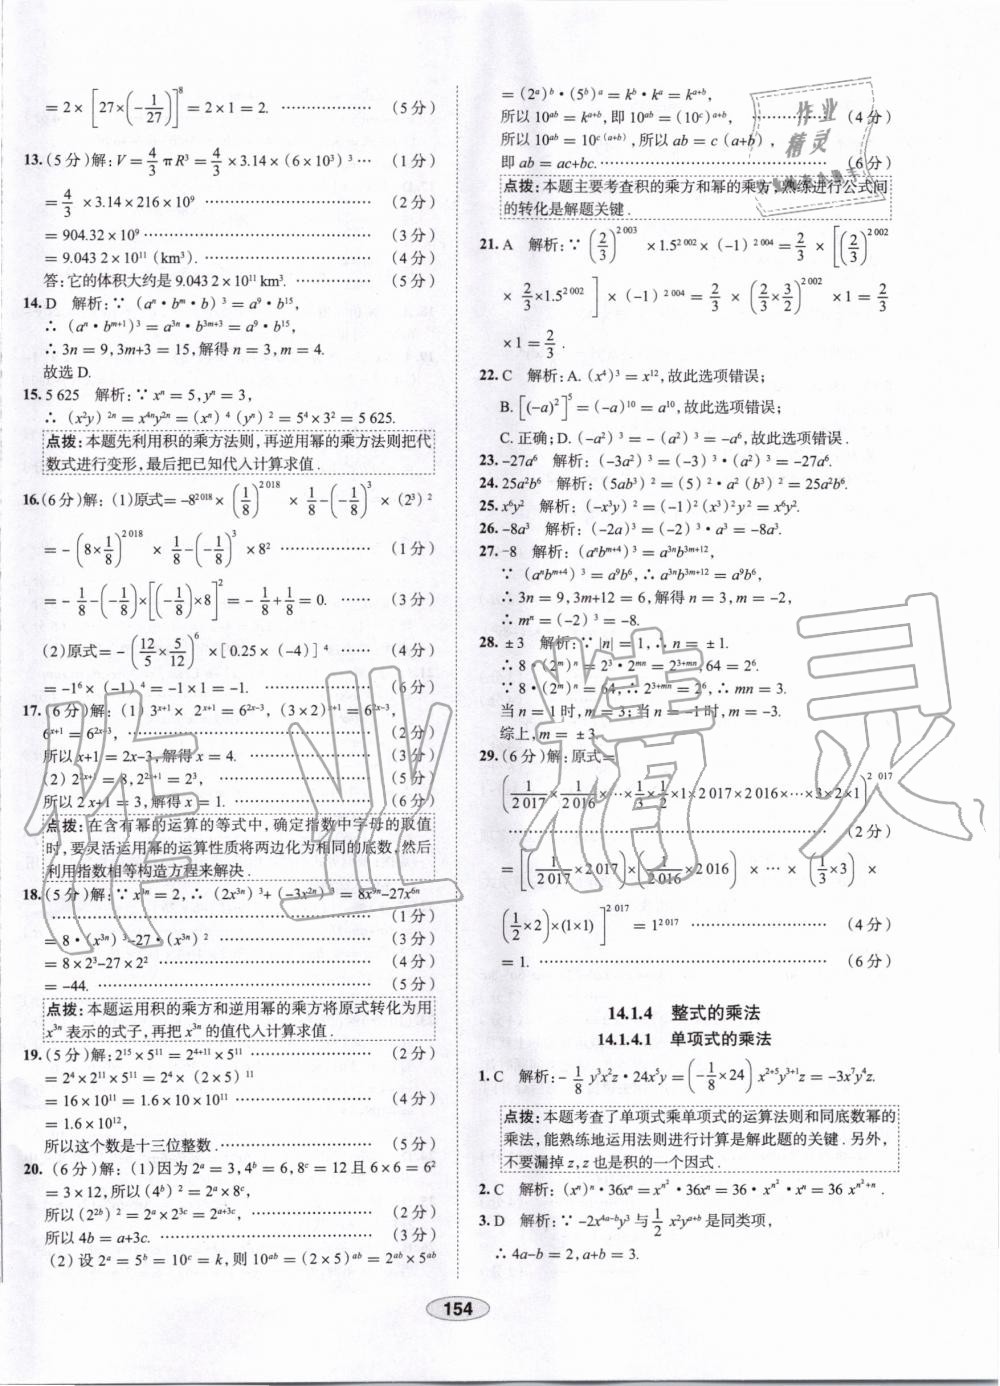 = 2× [27×(-1/27)]⁸ = 2×1 = 2. ………………(5分)
13.(5分)解：V = 4/3 πR³ = 4/3 ×3.14×(6×10³)³ …(1分)
= 4/3 ×3.14×216×10⁹ ………………(2分)
= 904.32×10⁹ ………………(3分)
= 9.043 2×10¹¹(km³). ………………(4分)
答：它的体积大约是9.043 2×10¹¹ km³. ………(5分)
14. D 解析：∵(aⁿ·bᵐ·b)³ = a⁹·b¹⁵，
∴(aⁿ·bᵐ⁺¹)³ = a³ⁿ·b³ᵐ⁺³ = a⁹·b¹⁵，
∴3n = 9,3m+3 = 15,解得n = 3,m = 4.
故选D.
15. 5 625 解析：∵xⁿ = 5,yⁿ = 3，
∴(x²y)²ⁿ = x⁴ⁿy²ⁿ = (xⁿ)⁴(yⁿ)² = 5⁴×3² = 5 625.
点拨：本题先利用积的乘方法则，再逆用幂的乘方法则把代
数式进行变形，最后把已知代入计算求值.
16.(6分)解：(1)原式= -8²⁰¹⁸×(1/8)²⁰¹⁸×1/8-(-1/8)³×(2³)²
= -(8×1/8)²⁰¹⁸×1/8-(-1/8)³×8² ………………(1分)
= -1/8-(-1/8)×[(-1/8)×8]² = -1/8+1/8 = 0. ……(3分)
(2)原式= -(12/5×5/12)⁶×[0.25×(-4)]⁴ ……(4分)
= -1⁶×(-1)⁴ = -1×1 = -1. ………………(6分)
17.(6分)解：(1)3ˣ⁺¹×2ˣ⁺¹ = 6²ˣ⁻³,(3×2)ˣ⁺¹ = 6²ˣ⁻³，
6ˣ⁺¹ = 6²ˣ⁻³， ………………(2分)
所以x+1 = 2x-3,解得x = 4. ………………(3分)
(2)2²ˣ⁺¹ = 8,2²ˣ⁺¹ = 2³， ………………(5分)
所以2x+1 = 3,解得x = 1. ………………(6分)
点拨：在含有幂的运算的等式中，确定指数中字母的取值
时，要灵活运用幂的运算性质将两边化为相同的底数，然后
利用指数相等构造方程来解决.
18.(5分)解：∵x³ⁿ = 2,∴(2x³ⁿ)³+(-3x²ⁿ)³ = 8x⁹ⁿ-27x⁶ⁿ
………………(1分)
= 8·(x³ⁿ)³-27·(x³ⁿ)² ………………(3分)
= 8×2³-27×2² ………………(4分)
= -44. ………………(5分)
点拨：本题运用积的乘方和逆用幂的乘方将原式转化为用
x³ⁿ表示的式子，再把x³ⁿ的值代入计算求值.
19.(5分)解：2¹⁵×5¹¹ = 2⁴⁺¹¹×5¹¹ ………………(2分)
= 2⁴×2¹¹×5¹¹ = 2⁴×(2×5)¹¹
= 16×10¹¹ = 1.6×10×10¹¹ ………………(4分)
= 1.6×10¹²，
所以这个数是十三位整数. ………………(5分)
20.(6分)解：(1)因为2ᵃ = 3,4ᵇ = 6,8ᶜ = 12且6×6 = 6²
= 3×12,所以(4ᵇ)² = 2ᵃ×8ᶜ，
所以(2²ᵇ)² = 2ᵃ×2³ᶜ = 2ᵃ⁺³ᶜ， ………………(2分)
所以4b = a+3c. ………………(3分)
(2)设2ᵃ = 5ᵇ = 10ᶜ = k,则10ᵃᵇ = (2×5)ᵃᵇ = 2ᵃᵇ×5ᵃᵇ
= (2ᵃ)ᵇ·(5ᵇ)ᵃ = kᵇ·kᵃ = kᵃ⁺ᵇ，
所以10ᵃᵇ = kᵃ⁺ᵇ,即10ᵃᵇ = (10ᶜ)ᵃ⁺ᵇ， ………………(4分)
所以10ᵃᵇ = 10ᶜ⁽ᵃ⁺ᵇ⁾,所以ab = c(a+b)，
即ab = ac+bc. ………………(6分)
点拨：本题主要考查积的乘方和幂的乘方，熟练进行公式间
的转化是解题关键.
21. A 解析：∵(2/3)²⁰⁰³×1.5²⁰⁰²×(-1)²⁰⁰⁴ = 2/3×[(2/3)²⁰⁰²
×2/3×1.5²⁰⁰²]×(-1)²⁰⁰⁴ = 2/3×(2/3×3/2)²⁰⁰²×1 = 2/3
×1 = 2/3.
22. C 解析：A.(x⁴)³ = x¹²,故此选项错误；
B.[(-a)²]⁵ = (-a)¹⁰ = a¹⁰,故此选项错误；
C.正确；D.(-a²)³ = -(a²)³ = -a⁶,故此选项错误.
23. -27a⁶ 解析：(-3a²)³ = (-3)³·(a²)³ = -27a⁶.
24. 25a²b⁶ 解析：(5ab³)² = (5)²·a²(b³)² = 25a²b⁶.
25. x⁶y² 解析：(-x³y)² = (-1)²(x³)²y² = x⁶y².
26. -8a³ 解析：(-2a)³ = (-2)³·a³ = -8a³.
27. -8 解析：(aⁿbᵐ⁺⁴)³ = a³ⁿb³ᵐ⁺¹²，
∵(aⁿbᵐ⁺⁴)³ = a⁹b⁶,∴a³ⁿb³ᵐ⁺¹² = a⁹b⁶，
∴3n = 9,3m+12 = 6,解得n = 3,m = -2，
∴mⁿ = (-2)³ = -8.
28. ±3 解析：∵|n| = 1,∴n = ±1.
∴8·(2ᵐ)ⁿ = 2³·2ᵐⁿ = 2³⁺ᵐⁿ,64 = 2⁶.
∵8·(2ᵐ)ⁿ = 64,∴2³⁺ᵐⁿ = 2⁶,∴mn = 3.
当n = 1时,m = 3;当n = -1时,m = -3.
综上,m = ±3.
29.(6分)解：原式=
(1/2 017×1/2 016×…×1/3×1/2×1×2 017×2 016×…×3×2×1)²⁰¹⁷
………………(2分)
= [(1/2 017×2 017)×(1/2 016×2 016)×…×(1/3×3)×
(1/2×2)×(1×1)]²⁰¹⁷ = 1²⁰¹⁷ ………………(4分)
= 1. ………………(6分)
14.1.4 整式的乘法
14.1.4.1 单项式的乘法
1. C 解析：-1/8 y³x²z·24x⁵y = (-1/8×24)x²⁺⁵y³⁺¹z = -3x⁷y⁴z.
点拨：本题考查了单项式乘单项式的运算法则和同底数幂的
乘法，能熟练地运用法则进行计算是解此题的关键.另外，
不要漏掉z,z也是积的一个因式.
2. C 解析：(xⁿ)ⁿ·36xⁿ = xⁿ²·36xⁿ = 36·xⁿ²·xⁿ = 36xⁿ²⁺ⁿ.
3. D 解析：∵-2x⁴ᵃ⁻ᵇy³与1/2 x²yᵃ⁺ᵇ是同类项，
∴4a-b = 2,a+b = 3.
154
作业
精灵
作业精灵